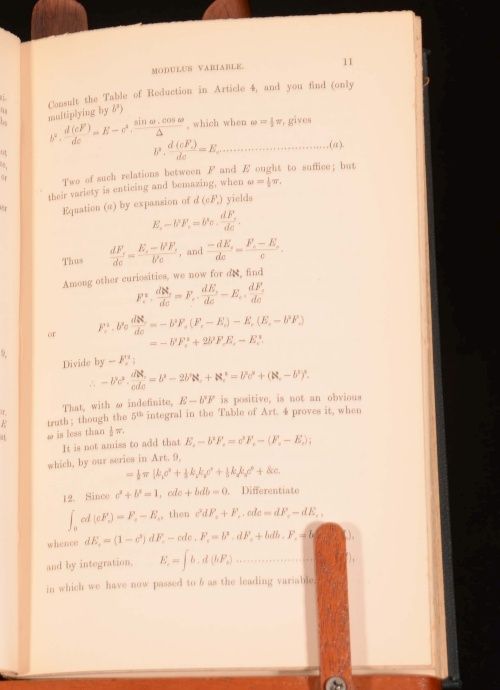 MODULUS VARIABLE. 11
Consult the Table of Reduction in Article 4, and you find (only
multiplying by b²)
b² . d(cF)/dc = E − c² . sin ω . cos ω/Δ , which when ω = ½π, gives
b² . d(cF_c)/dc = E_c ..............................(a).
Two of such relations between F and E ought to suffice; but
their variety is enticing and bemazing, when ω = ½π.
Equation (a) by expansion of d (cF_c) yields
E_c − b²F_c = b²c . dF_c/dc .
Thus dF_c/dc = (E_c − b²F_c)/b²c , and −dE_c/dc = (F_c − E_c)/c .
Among other curiosities, we now for dℵ_c find
F_c² . dℵ_c/dc = F_c . dE_c/dc − E_c . dF_c/dc
or F_c² . b²c dℵ_c/dc = − b²F_c (F_c − E_c) − E_c (E_c − b²F_c)
= − b²F_c² + 2b²F_cE_c − E_c².
Divide by − F_c²;
∴ − b²c² . dℵ_c/cdc = b² − 2b²ℵ_c + ℵ_c² = b²c² + (ℵ_c − b²)².
That, with ω indefinite, E − b²F is positive, is not an obvious
truth; though the 5th integral in the Table of Art. 4 proves it, when
ω is less than ½π.
It is not amiss to add that E_c − b²F_c = c²F_c − (F_c − E_c);
which, by our series in Art. 9,
= ½π {k₁c² + ½k₁k₂c⁴ + ⅓k₁k₂c⁶ + &c.
12. Since c² + b² = 1, cdc + bdb = 0. Differentiate
∫₀ cd (cF_c) = F_c − E_c, then c²dF_c + F_c . cdc = dF_c − dE_c,
whence dE_c = (1 − c²) dF_c − cdc . F_c = b² . dF_c + bdb . F_c = b
and by integration, E_c = ∫ b . d (bF_c) ..................
in which we have now passed to b as the leading variable.